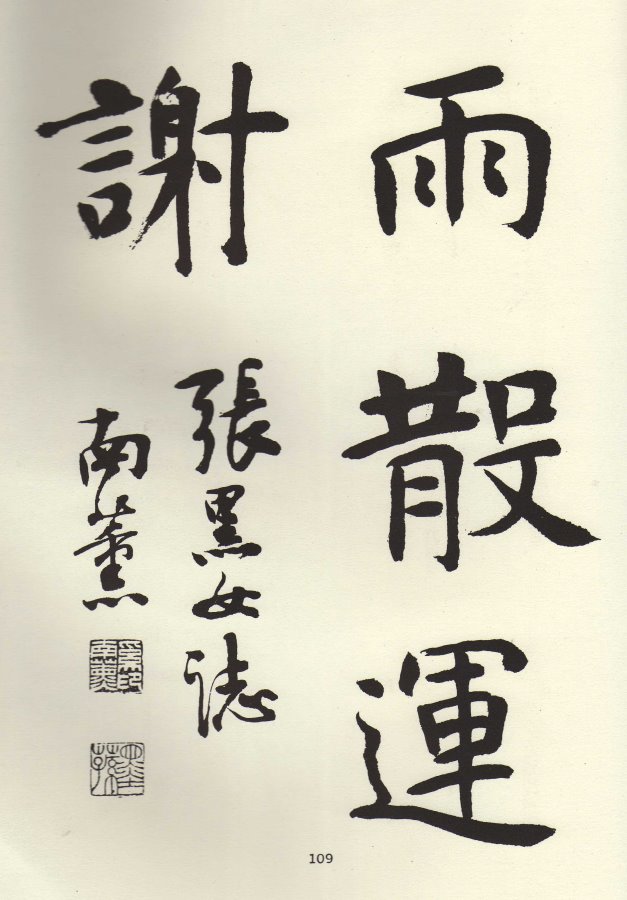 雨散運
謝
張黑女誌
南薰
109